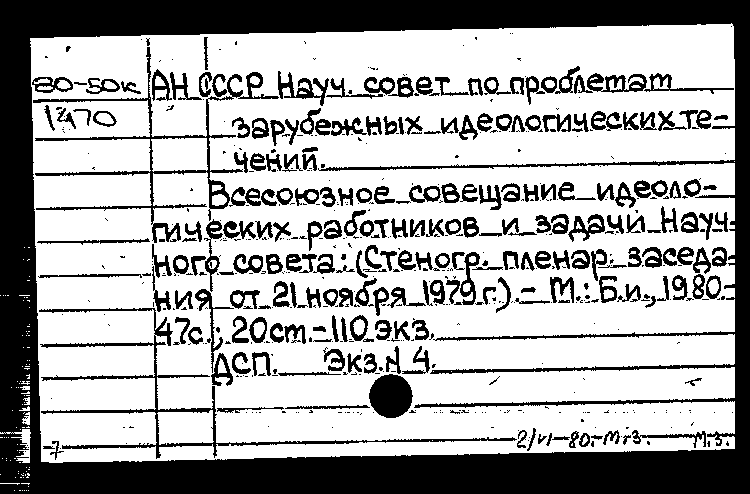 80-50к АН СССР. Науч. совет по проблемам
1470 зарубежных идеологических те-
чений.
Всесоюзное совещание идеоло-
гических работников и задачи Науч-
ного совета: (Стеногр. пленар. заседа-
ния от 21 ноября 1979 г.) - М.: Б.и., 1980.-
47с.; 20см.-110 экз.
ДСП. Экз.№ 4.
7 2/VI-80.-М.З. М.З.